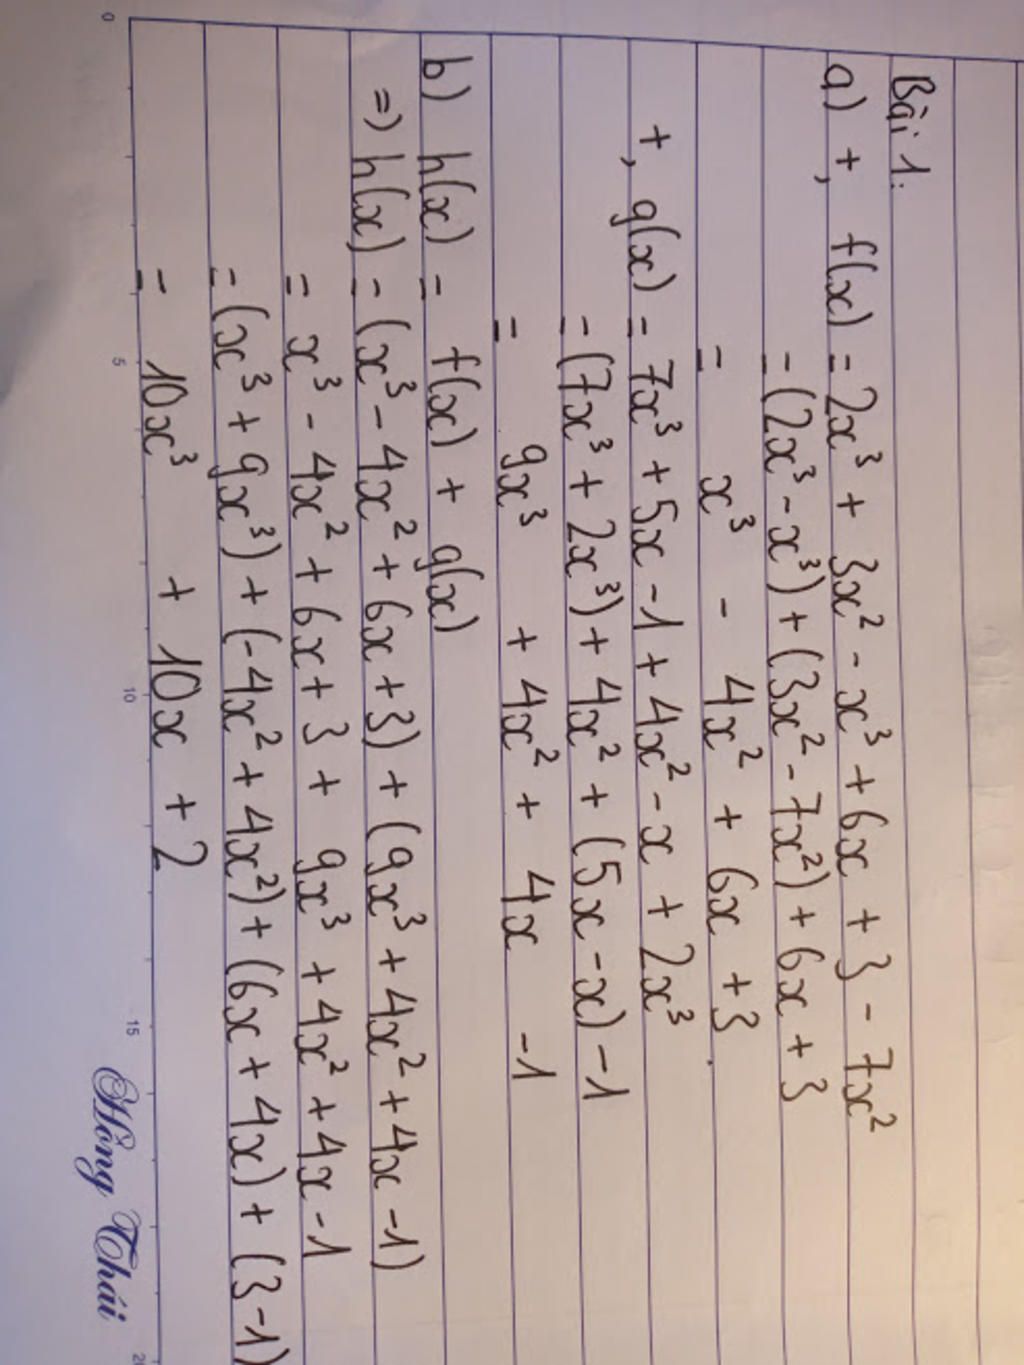 Bài 1.
a) +, f(x) = 2x³ + 3x² - x³ + 6x + 3 - 7x²
= (2x³ - x³) + (3x² - 7x²) + 6x + 3
= x³ - 4x² + 6x + 3.
+, g(x) = 7x³ + 5x - 1 + 4x² - x + 2x³
= (7x³ + 2x³) + 4x² + (5x - x) - 1
= 9x³ + 4x² + 4x - 1
b) h(x) = f(x) + g(x)
=> h(x) = (x³ - 4x² + 6x + 3) + (9x³ + 4x² + 4x - 1)
= x³ - 4x² + 6x + 3 + 9x³ + 4x² + 4x - 1
= (x³ + 9x³) + (-4x² + 4x²) + (6x + 4x) + (3 - 1)
= 10x³ + 10x + 2
0 5 10 15
Hồng Thái